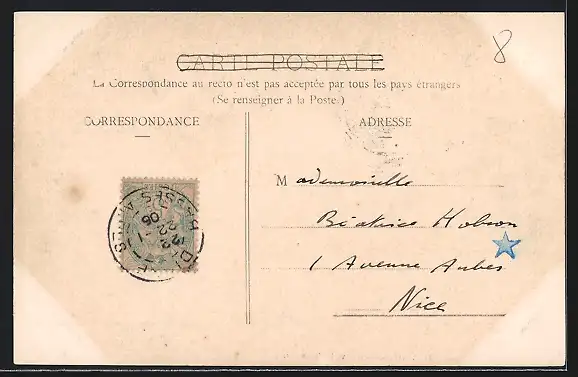 8
CARTE POSTALE
La Correspondance au recto n'est pas acceptée par tous les pays étrangers
(Se renseigner à la Poste.)
CORRESPONDANCE
ADRESSE
Mademoiselle
Béatrice Hobson
1 Avenue Auber
Nice